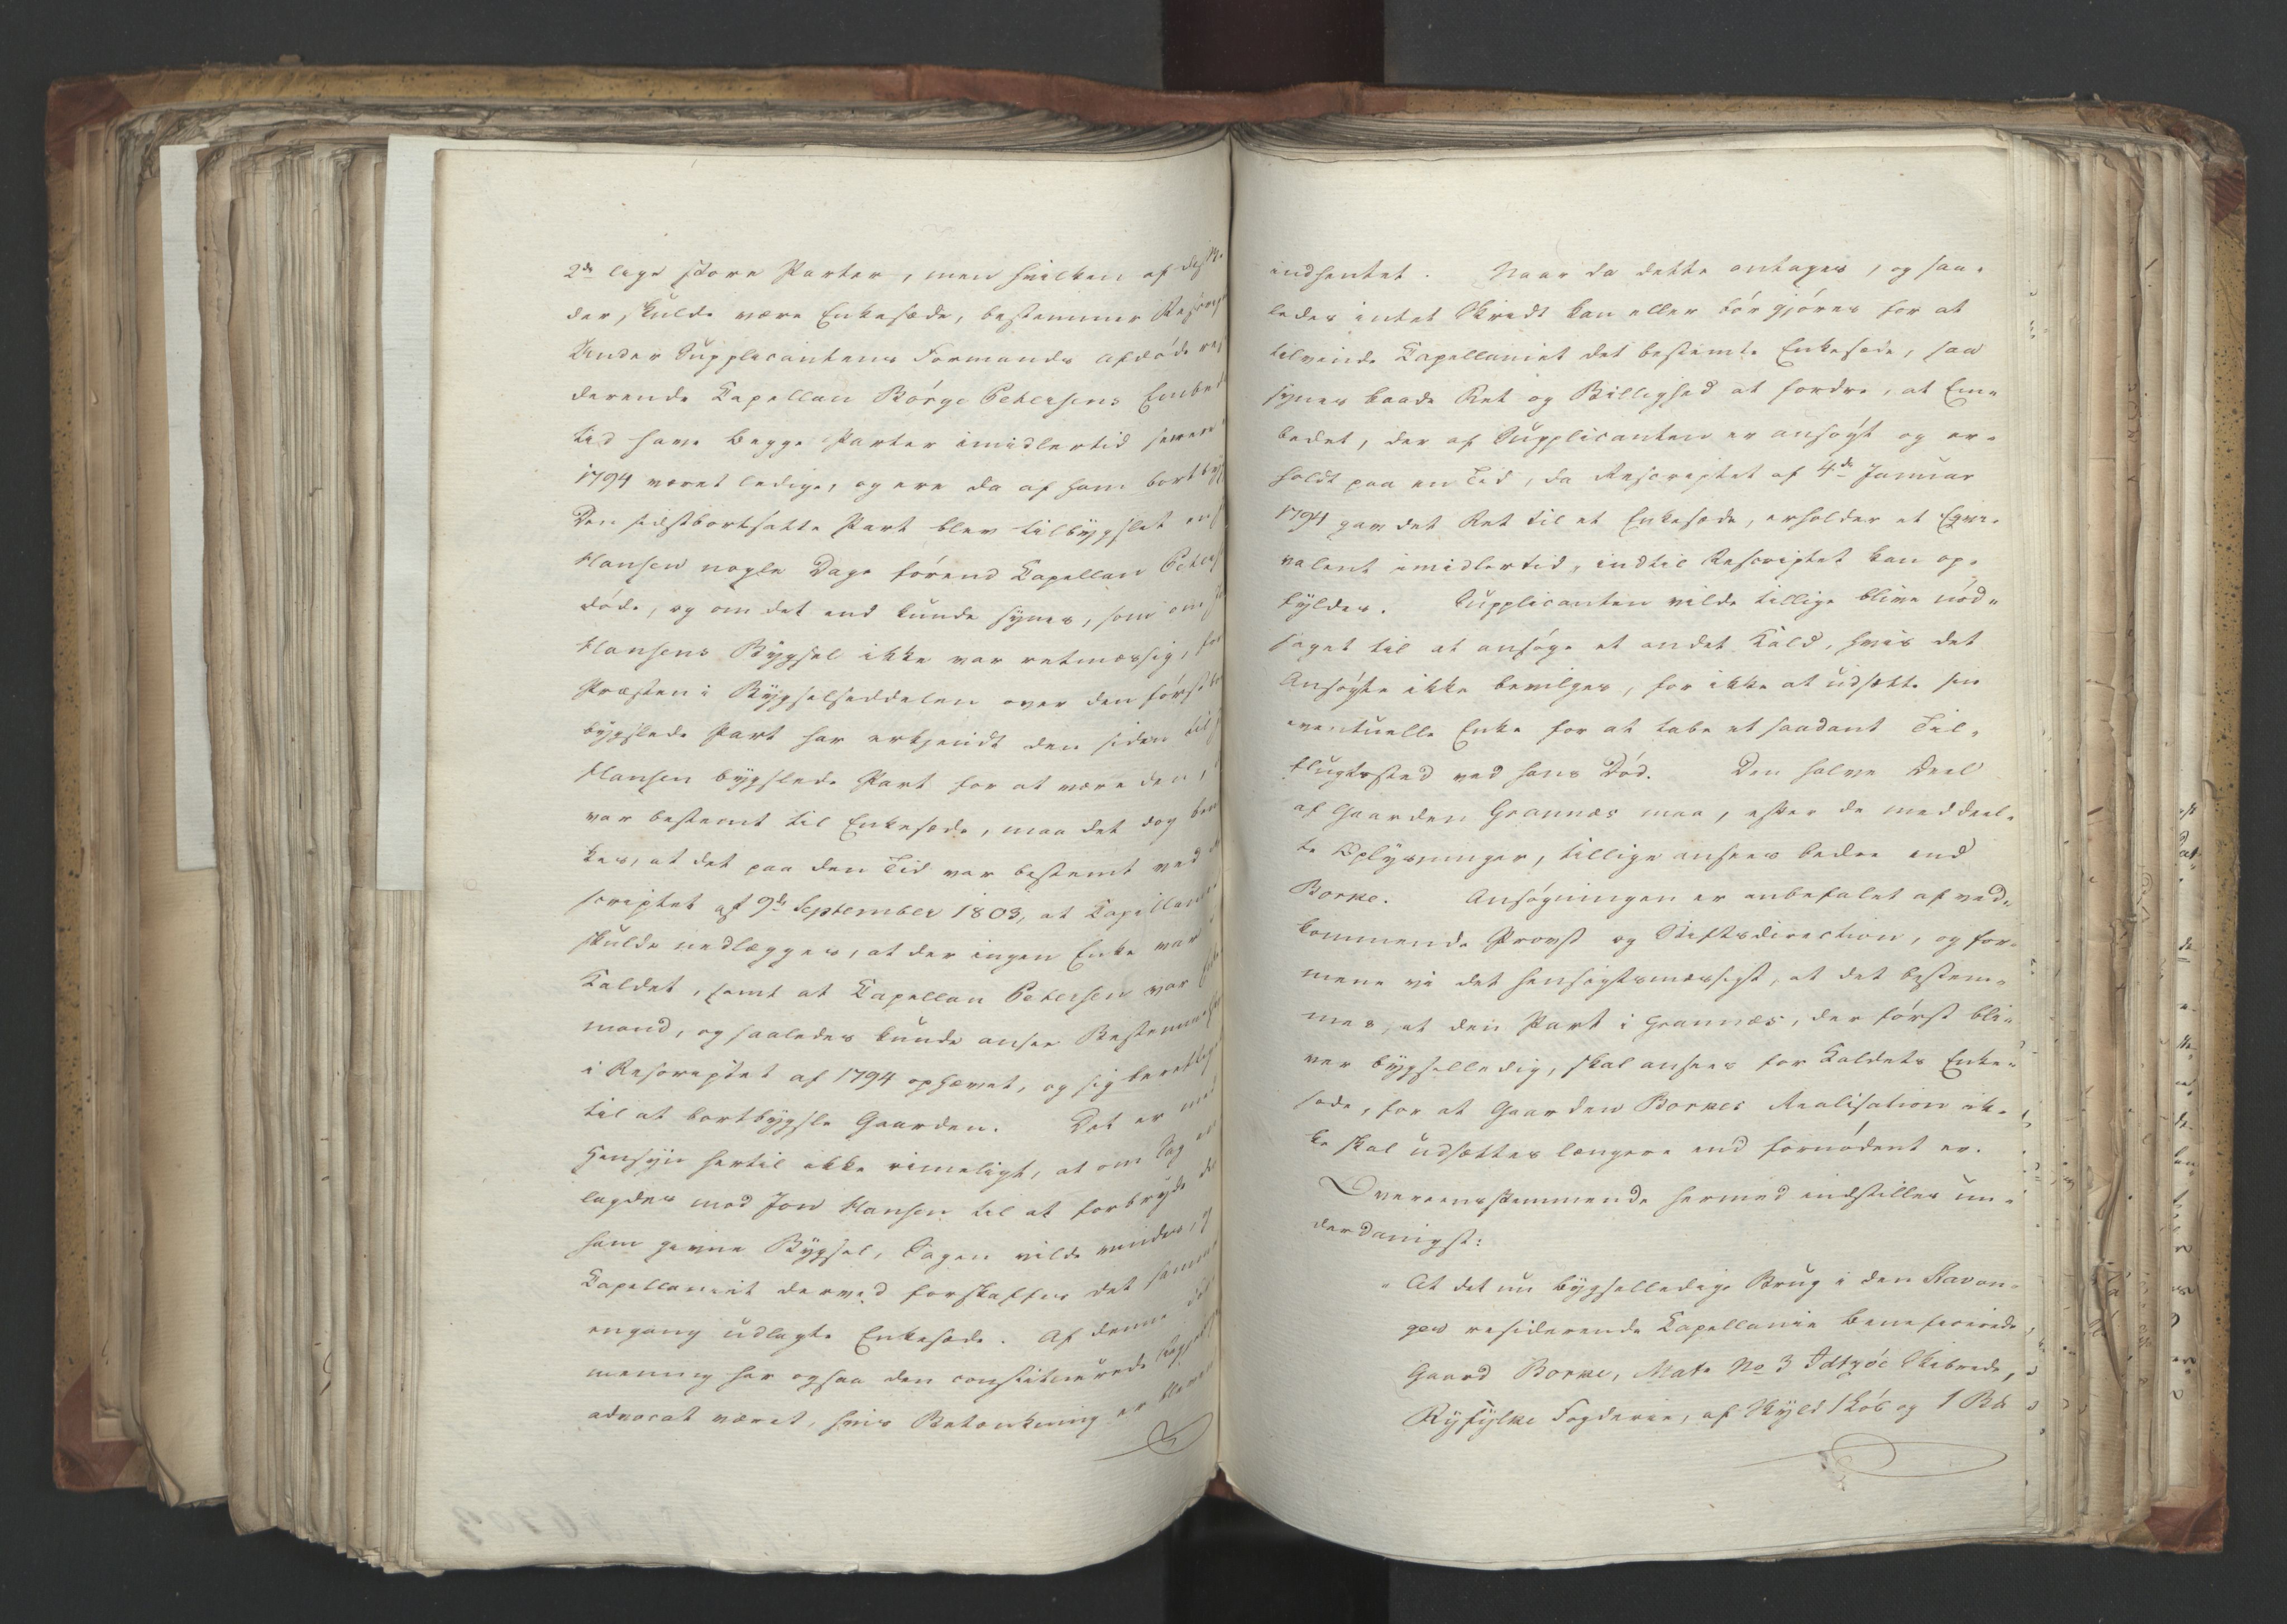 2de lige store Parter, men hvilken af disse
der skulde være Enkesæde, bestemmer
Under Supplicantens Formands afdøde resi
derende Capellan Börge Petersens Embeds
tid have begge Parter imidlertid
1794 været ledige, og ere da af ham
Den sidstbortsatte Part blev tilbygslet
Hansen nogle Dage förend Capellan Peters
döde, og om det end kunde synes, som om
Hansens Bygsel ikke var retmæssig,
Præsten i Bygselseddelen over den först
bygslede Part har erkjendt den siden til
Hansen bygslede Part for at være den,
var bestemt til Enkesæde, maa det dog
kes, at det paa den Tid var bestemt ved
scriptet af 9de September 1803, at Capellaniet
skulde nedlægges, at der ingen Enke var i
Kaldet, samt at Capellan Petersen var
mand, og saaledes kunde ansee Bestemmelsen
i Rescriptet af 1794 ophævet, og sig berettiget
til at bortbygsle Gaarden. Det er med
Hensyn hertil ikke rimeligt, at om Sag
lagdes mod Jon Hansen til at forbryde
ham givne Bygsel, Sagen vilde vindes, og
Capellaniet derved forskaffes det samme
engang udlagte Enkesæde. Af denne
mening har ogsaa den constituerede
advocat været, hvis Betænkning er bleven
indhentet. Naar da dette antages, og saa-
ledes intet Skridt kan eller bör gjöres for at
tilvende Capellaniet det bestemte Enkesæde, saa
synes baade Ret og Billighed at fordre, at Em-
bedet, der af Supplicanten er ansögt og er-
holdt paa en Tid, da Rescriptet af 4de Januar
1794 gav det Ret til et Enkesæde, erholder et Eqvi-
valent imidlertid, indtil Rescriptet kan op-
fyldes. Supplicanten vilde tillige blive nöd-
saget til at ansöge et andet Kald, hvis det
Ansögte ikke bevilges, for ikke at udsætte sin
eventuelle Enke for at tabe et saadant Til-
flugtssted ved hans Död. Den halve Deel
af Gaarden Grannæs maa, efter de meddeel-
te Oplysninger, tillige ansees bedre end
Borke. Ansögningen er anbefalet af ved-
kommende Provst og Stiftsdirection, og for-
mene vi det hensigtsmæssigt, at det bestem-
mes, at den Part i Grannæs, der först bli-
ver bygselledig, skal ansees for Kaldets Enke-
sæde, for at Gaarden Borkes Realisation ik-
ke skal udsættes længere end fornödent er.
Overeensstemmende hermed indstilles un-
derdanigst:
"At det nu bygselledige Brug i den Stavan-
ger residerende Capellanie beneficerede
Gaard Borke, Matr. No 3 Idtzöe Skibrede,
Ryfylke Fogderie, af Skyld 1 Kób og 1